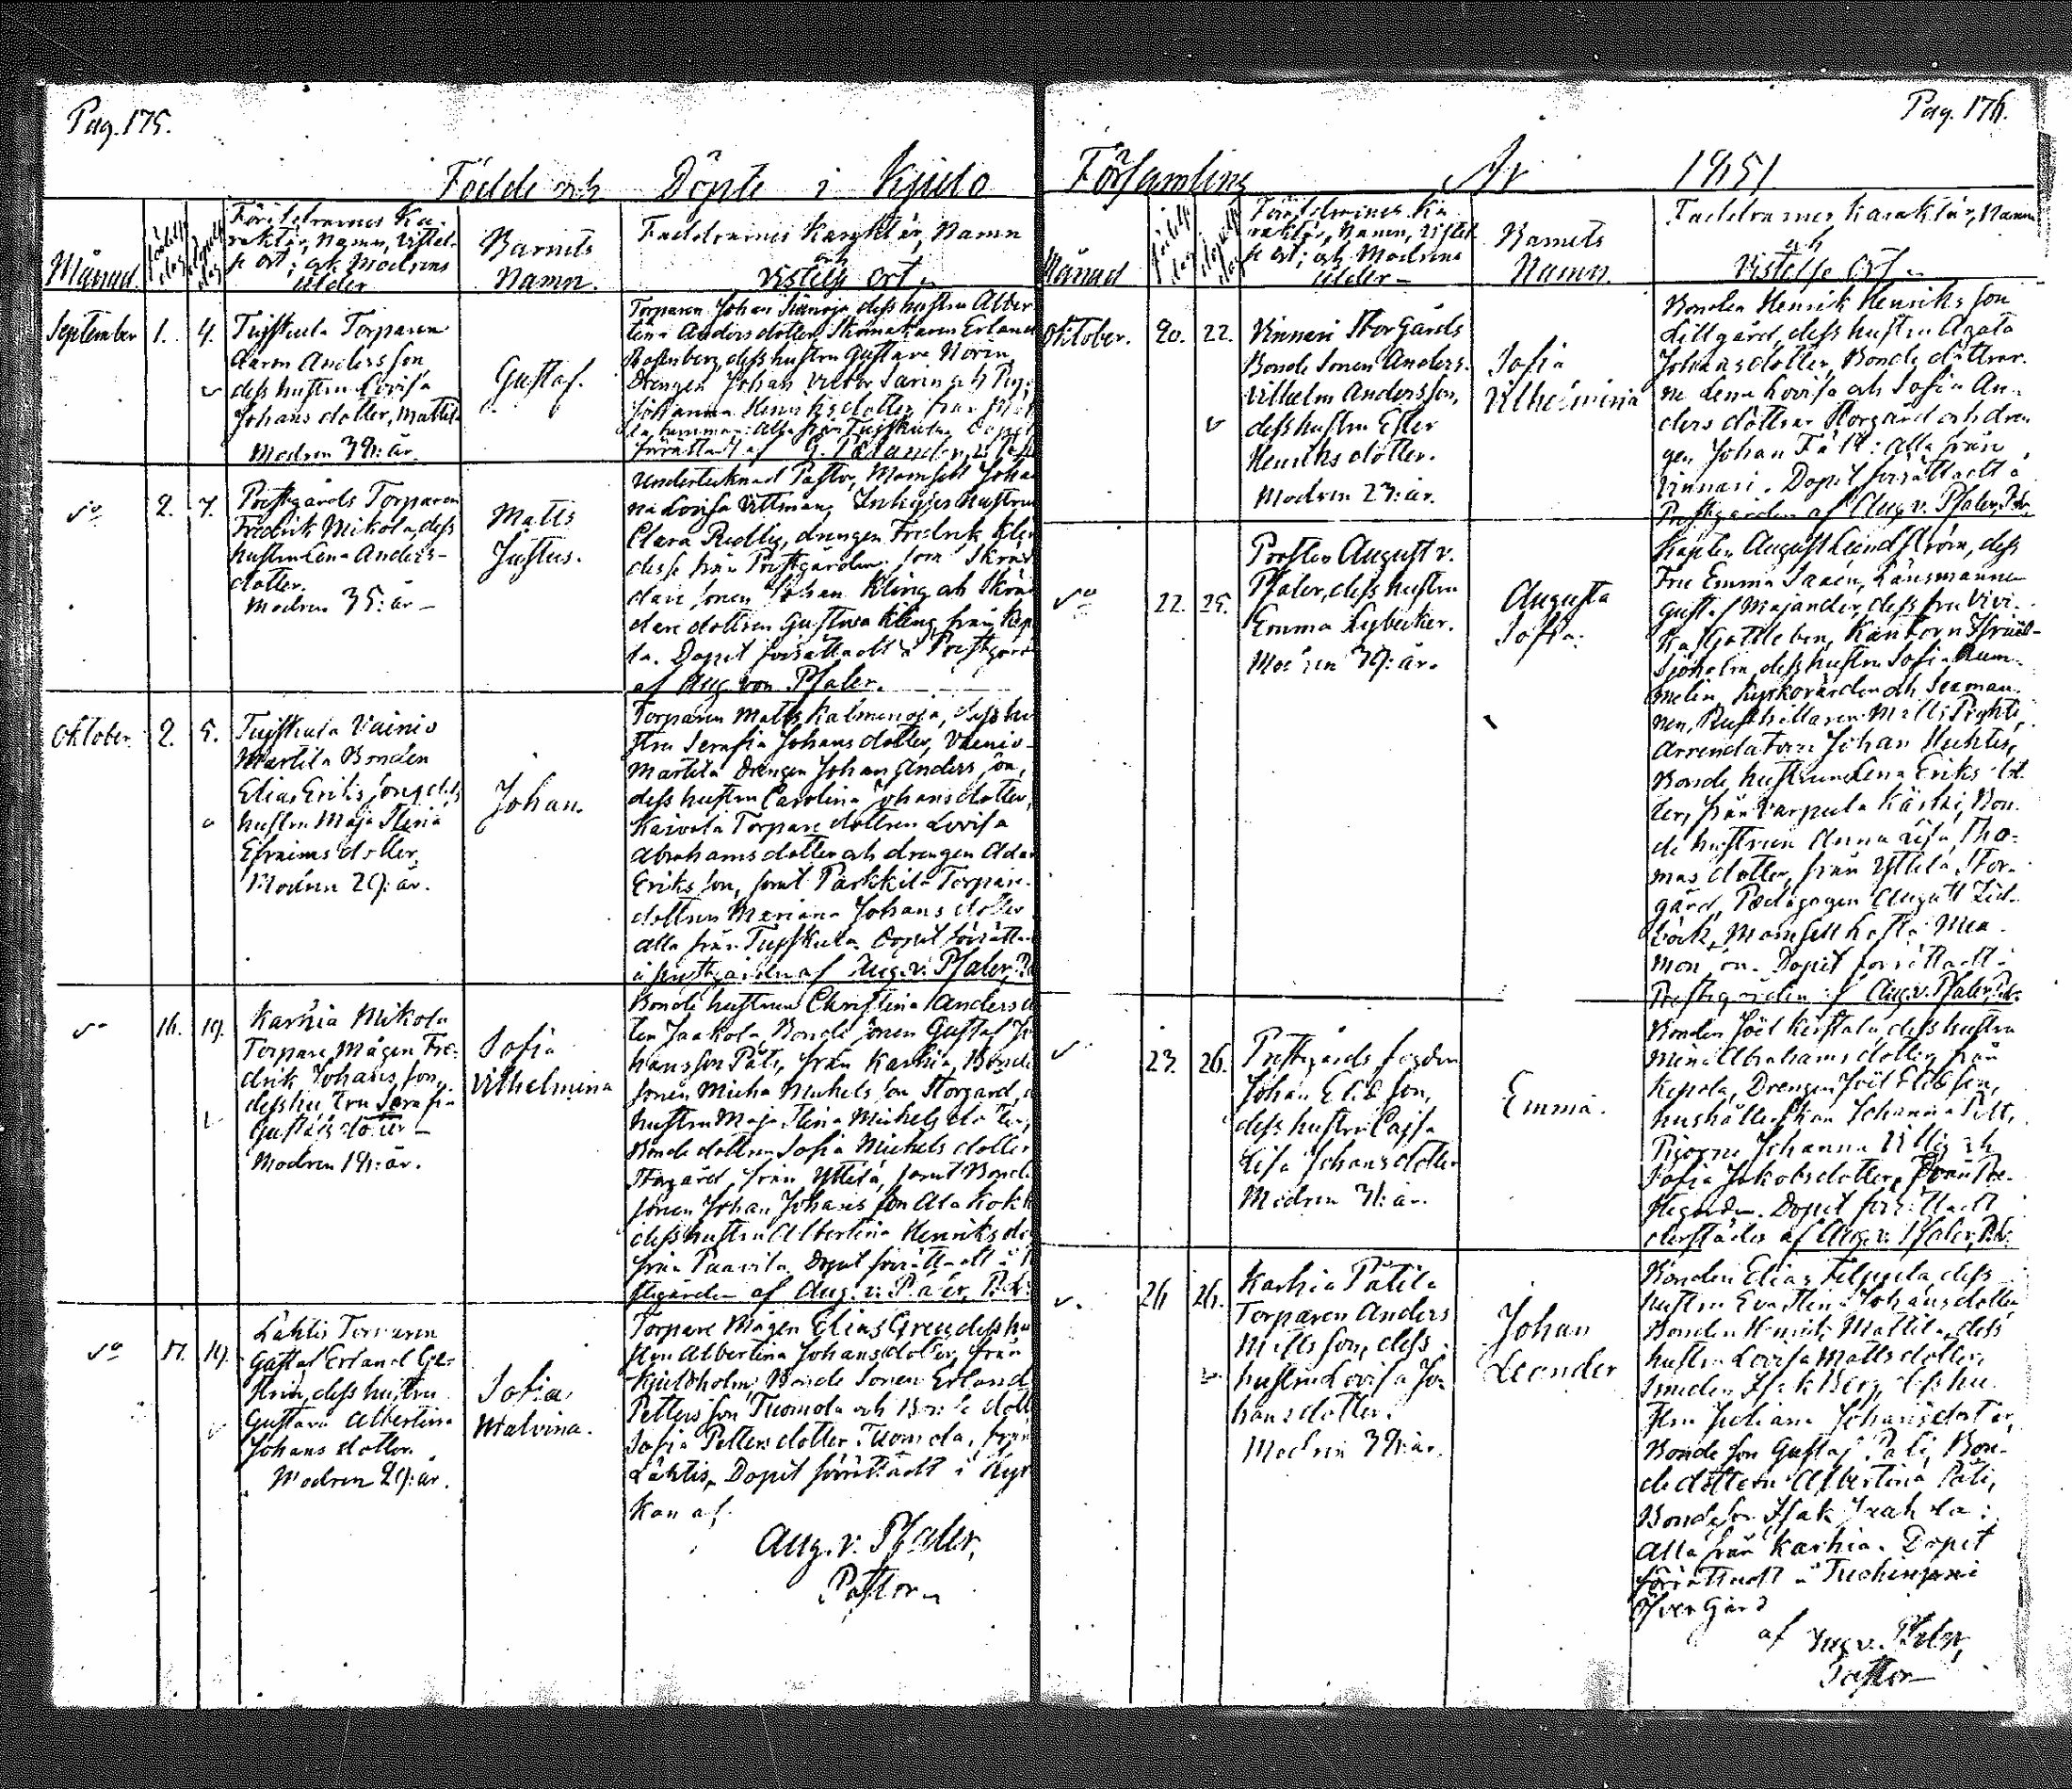 Pag. 175.
Födde och Döpte i Kjulo
Månad
födelse dag
döpelse dag
Föräldrarnes Ka-
raktär, Namn, Vistel-
se ort; och Modrens
ålder
Barnets
Namn.
Faddrarnes Karaktär, Namn
och
Vistelse ort
September 1. 4.
Tujskula Torparen
Aaron Andersson,
dess hustru Lovisa
Johansdotter, Mattila
Modren 39: år.
Gustaf.
Torparen Johan dess hustru Alber
tina Andersdotter, Skomakaren Erland
dess hustru Gustava Norin,
Drengen Johan Victor och
Johanna Henriksdotter från
alla från Tujskula. Dopet
förrättadt af G.
2. 7.
Prestgårds Torparen
Fredrik Mikola, dess
hustru Lena Anders-
dotter.
Modren 35: år
Matts
Justus.
Undertecknad Pastor, Mamsell Joha
na Lovisa Vittman, Inhyses Hustrun
Clara drengen Fredrik
desse från Prestgården, samt Skräd
dare sonen Johan Kling och Skräd
dare dottren Gustava Kling från Kep
la. Dopet förrättadt i Prestgård
af Aug. von Pfaler.
Oktober 2. 5.
Tujskula Vainio
Martila Bonden
Elias Eriksson, dess
hustru Maja Stina
Efraimsdotter.
Modren 29: år.
Johan.
Torparen Matts Kalmenoja, dess hu
stru Serafia Johansdotter, Vainio-
Martila Drengen Johan Andersson,
dess hustru Carolina Johansdotter,
Torpare dottren Lovisa
Abrahamsdotter och drengen Adam
Eriksson, samt Parkkila Torpare
dottren Mariana Johansdotter
alla från Tujskula. Dopet förrätta
i prestgården af Aug. v. Pfaler,
16. 19.
Karhia Mikola
Torpare Mågen Fre-
drik Johansson,
dess hustru Serafia
Gustafsdotter
Modren 19: år.
Sofia
Vilhelmina
Bonde hustrun Christina Andersdo
ter Jaakola, Bonde sonen Gustaf Jo
hansson Päti, från Karhia, Bonde
sonen Micha Michelsson Storgård,
hustru Maja Stina Michelsdotter,
Bonde dottren Sofia Michelsdotter
Storgård, från Yttilä, samt Bonde
sonen Johan Johansson Alakokk
dess hustru Albertina Henriksdo
från Paavila. Dopet förrättadt i
stgården af Aug. v. Pfaler,
17. 19.
Lähtis Torparen
Gustaf Erland
dess hustru
Gustava Albertina
Johansdotter.
Modren 29: år.
Sofia
Malvina.
Torpare Mågen Elias Gren, dess hu
stru Albertina Johansdotter, från
Kjuloholm, Bonde Sonen Erland
Pettersson Tuomola och Bonde dott
Sofia Pettersdotter Tuomola, från
Lähtis. Dopet förrättadt i Kyr
kan af
Aug. v. Pfaler,
Pastor
Pag. 176.
Församling År 1851
Månad
födelse dag
döpelse dag
Föräldrarnes Ka
raktär, Namn, Vistel
se ort; och Modrens
ålder
Barnets
Namn.
Faddrarnes Karaktär, Namn
och
Vistelse Ort
Oktober. 20. 22.
Vinnari Storgårds
Bonde Sonen Anders
Vilhelm Andersson,
dess hustru Ester
Henriksdotter.
Modren 23: år.
Sofia
Vilhelmina
Bonden Henrik Henriksson
Lillgård, dess hustru Agata
Johansdotter, Bonde döttrar-
ne Lena Lovisa och Sofia An-
dersdöttrar Storgård och dren
gen Johan Fält: alla från
Vinnari. Dopet förrättadt i
Prestgården af Aug. v. Pfaler,
22. 25.
Pastor August v.
Pfaler, dess hustru
Emma Lybecker.
Modren 39: år.
Augusta
Sofia.
Kaplan August Lindström, dess
Fru Emma Länsmannen
Gustaf Majander, dess fru Vivi-
ka Gottleben, Kantorn Israel
Sjöholm, dess hustru Sofia
Kyrkovärden och Sexman
nen, Rusthållaren Matts
Arrendatorn Johan Huhtis,
Bonde hustrun Lena Eriksdot
ter, från Varpula Kärki, Bon
de hustrun Anna Lisa Tho-
masdotter, från Yttilä Stor-
gård, Pedagogen August
Mamsell
Dopet förrättadt i
Prestgården af Aug. v. Pfaler,
23. 26.
Prestgårds fogden
Johan Eliasson,
dess hustru Cajsa
Lisa Johansdotter
Modren 31: år.
Emma.
Bonden Joël dess hustru
Mina Abrahamsdotter från
Kepola, Drengen Joël Eliasson,
hushållerskan Johanna
Pigorne Johanna och
Sofia Jakobsdotter, från Pre-
stgården. Dopet förrättadt
derstädes af Aug. v. Pfaler,
26. 26.
Karhia Pätilä
Torparen Anders
Mattsson, dess
hustru Lovisa Jo-
hansdotter.
Modren 39: år.
Johan
Leander
Bonden Elias dess
hustru Eva Stina Johansdotter
Bonden Henrik Mattila, dess
hustru Lovisa Mattsdotter,
Smeden Isak Berg, dess hu
stru Juliana Johansdotter,
Bonde son Gustaf Päti, Bon-
de dottern Albertina Päti,
Bondeson Isak
Alla från Karhia. Dopet
förrättadt i
Öfvergård
af Aug. v. Pfaler,
Pastor